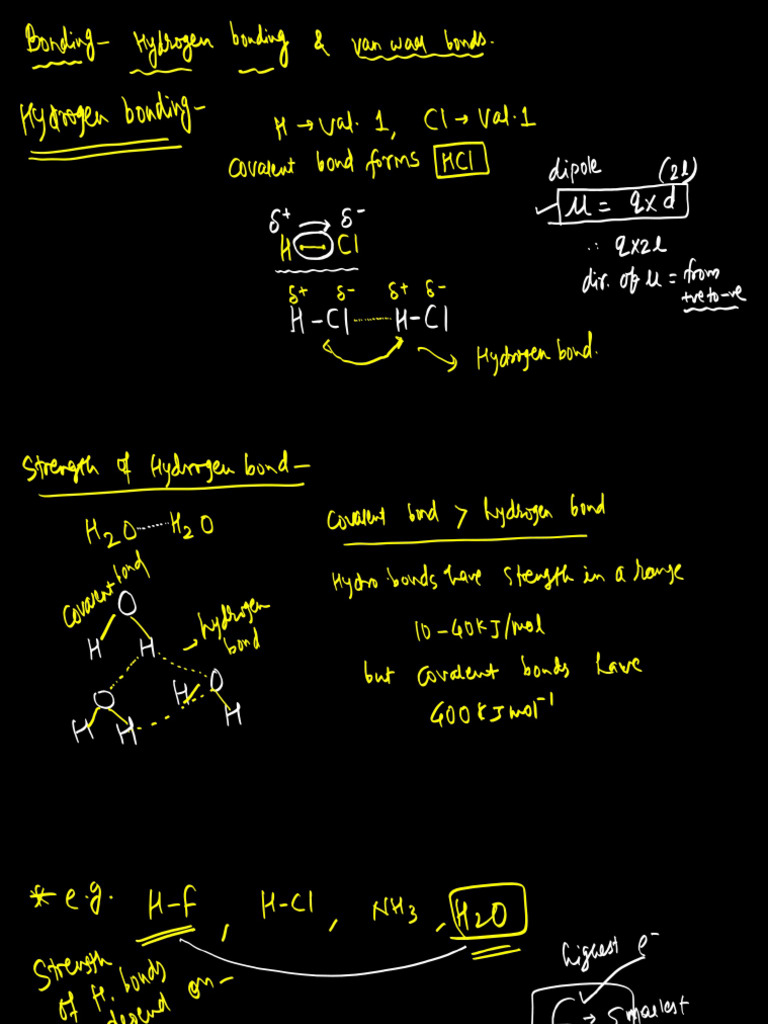 Bonding- Hydrogen bonding & van waal bonds.
Hydrogen bonding-
H → Val. 1, Cl → Val. 1
Covalent bond forms HCl
δ+ δ-
H Cl
dipole (2l)
μ = q×d
∴ q×2l
dir. of μ = from
+ve to -ve
δ+ δ- δ+ δ-
H-Cl H-Cl
Hydrogen bond.
Strength of Hydrogen bond-
H2O H2O
Covalent bond > hydrogen bond
Hydro bonds have strength in a range
10-40 KJ/mol
but covalent bonds have
400 KJ mol-1
covalent bond
O
H H
hydrogen
bond
O H O
H H H
* e.g. H-F, H-Cl, NH3, H2O
Strength
of H. bonds
depend on-
highest e-
→ smallest